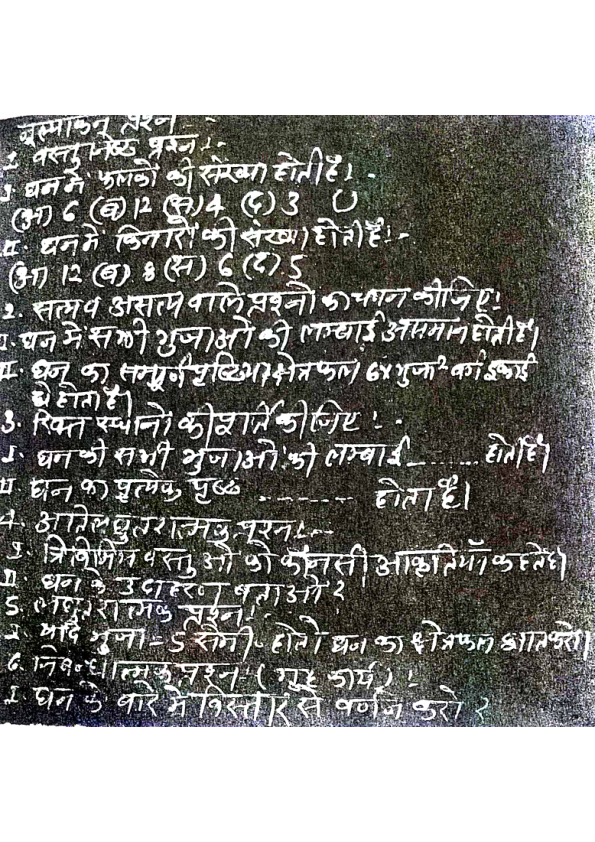 मूल्यांकन प्रश्न :-
1. वस्तुनिष्ठ प्रश्न :-
I. घन में फलकों की संख्या होती है। -
(अ) 6 (ब) 12 (स) 4 (द) 3 ( )
II. घन में किनारों की संख्या होती है :-
(अ) 12 (ब) 8 (स) 6 (द) 5
2. सत्य व असत्य वाले प्रश्नों का चयन कीजिए।
I. घन में सभी भुजाओं की लम्बाई असमान होती है।
II. घन का सम्पूर्ण पृष्ठीय क्षेत्रफल 6x भुजा² वर्ग इकाई
होता है।
3. रिक्त स्थानों की पूर्ति कीजिए :-
I. घन की सभी भुजाओं की लम्बाई ........ होती है।
II. घन का प्रत्येक पृष्ठ ........ होता है।
4. अतिलघुतरात्मक प्रश्न :-
I. त्रिविमीय वस्तुओं को कौनसी आकृतियाँ कहते है।
II. घन के उदाहरण बताओ ?
5. लघुतरात्मक प्रश्न :
I. यदि भुजा = 5 सेमी. हो तो घन का क्षेत्रफल ज्ञात करो।
6. निबन्धात्मक प्रश्न (गृह कार्य) :-
I. घन के बारे में विस्तार से वर्णन करो ?